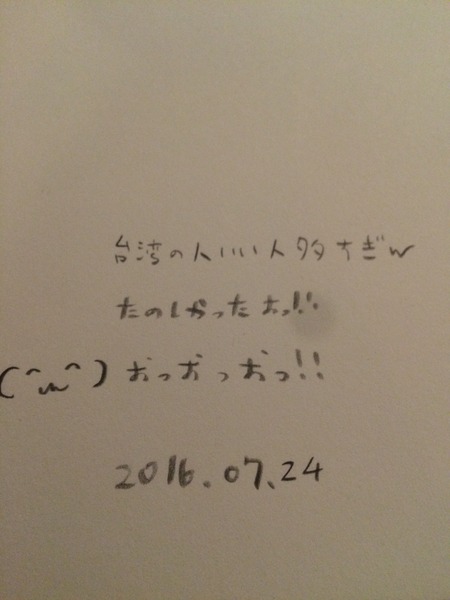 台湾の人いい人多すぎw
たのしかったおっ!!
(^ω^) おっおっおっ!!
2016.07.24